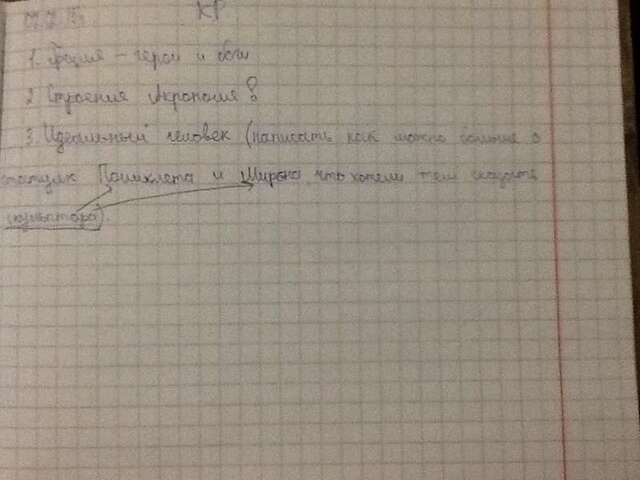 КР
1. Греция – герои и боги
2. Строения Акрополя?
3. Идеальный человек (написать как можно больше о
статуях Поликлета и Мирона что хотели тем сказать
скульптора).